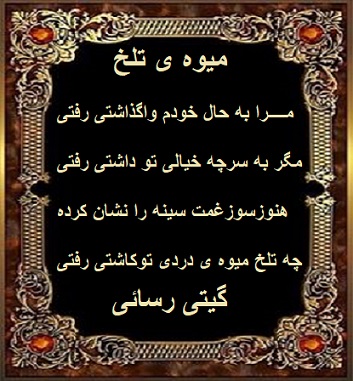 میوه ی تلخ
مــــرا به حال خودم واگذاشتی رفتی
مگر به سرچه خیالی تو داشتی رفتی
هنوزسوزغمت سینه را نشان کرده
چه تلخ میوه ی دردی توکاشتی رفتی
گیتی رسائی